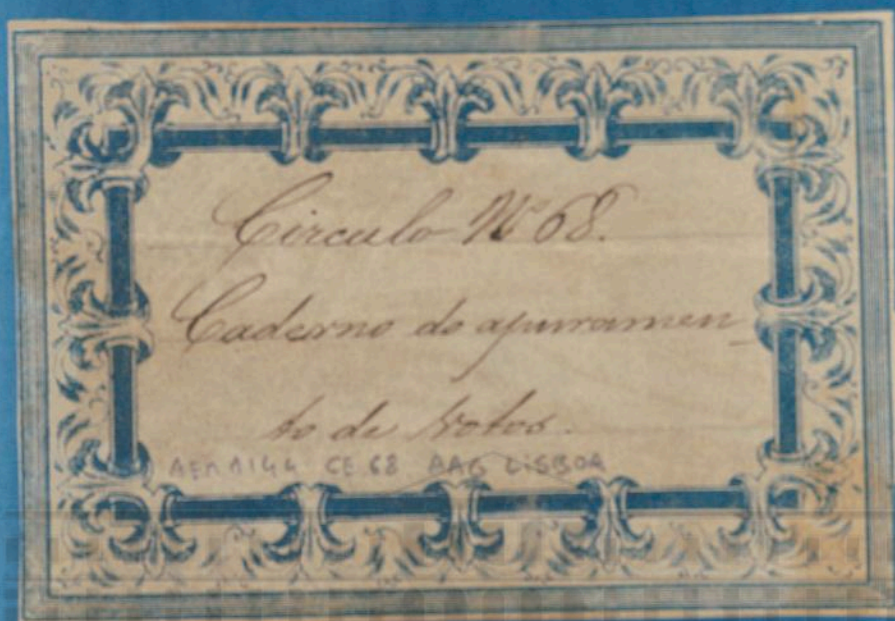 Circulo Nº 68.
Caderno do apuramen
to de Votos.
CE 68 LISBOA